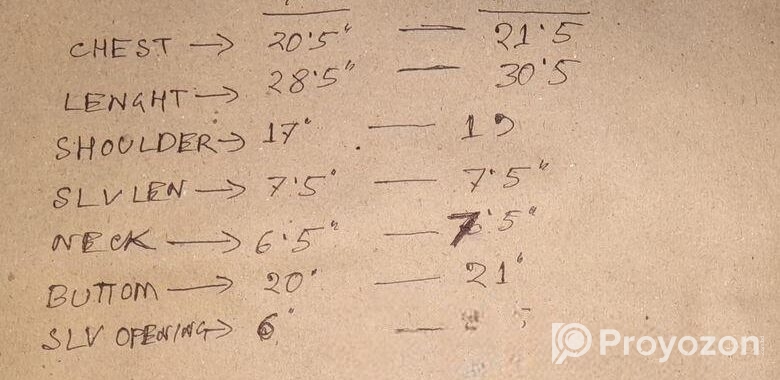 CHEST → 20.5" — 21.5
LENGHT → 28.5" — 30.5
SHOULDER → 17" — 19
SLV LEN → 7.5" — 7.5"
NECK → 6.5" — 7.5"
BUTTOM → 20" — 21"
SLV OPENING → 6" —
Proyozon